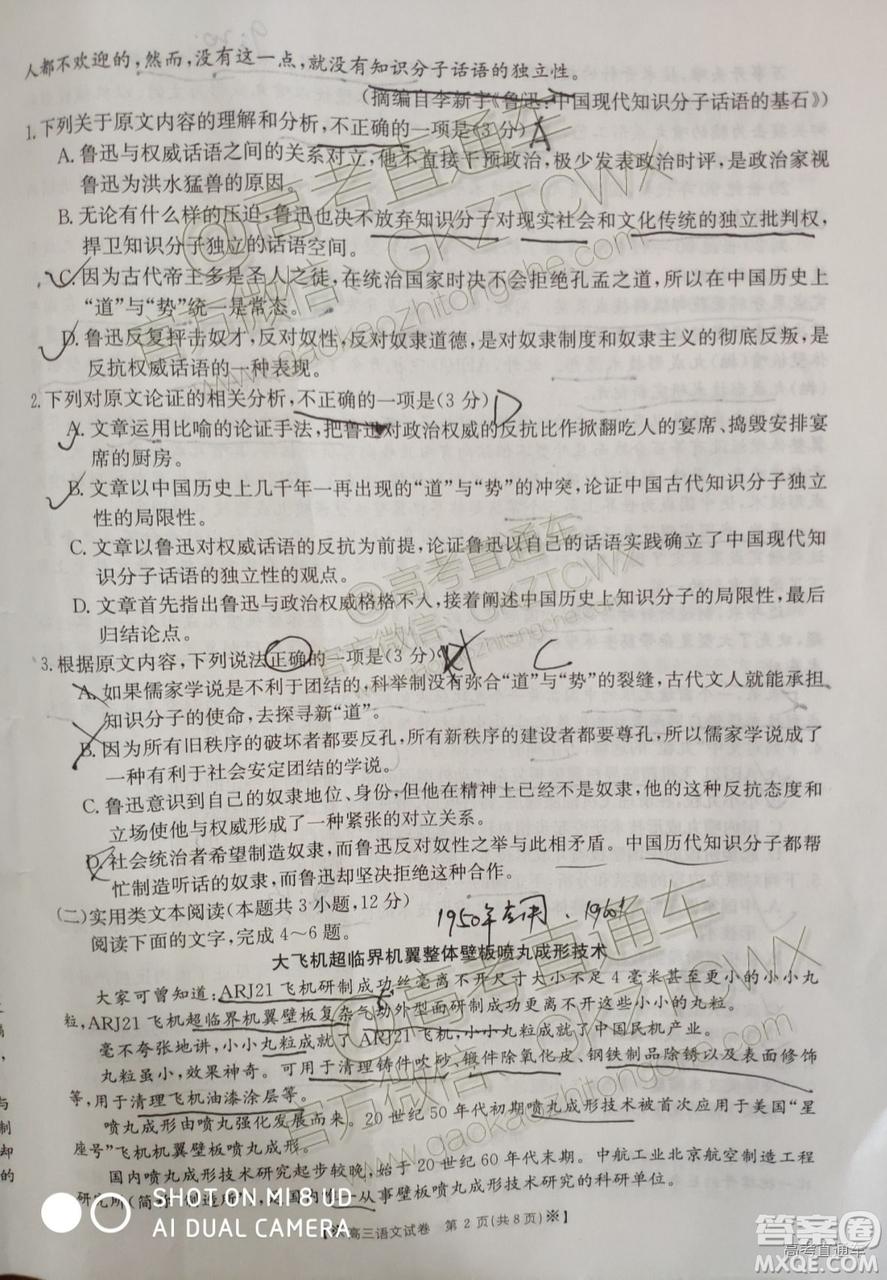 人都不欢迎的，然而，没有这一点，就没有知识分子话语的独立性。
（摘编自李新宇《鲁迅：中国现代知识分子话语的基石》）
1.下列关于原文内容的理解和分析，不正确的一项是（3分） A
A.鲁迅与权威话语之间的关系对立，他不直接干预政治，极少发表政治时评，是政治家视
鲁迅为洪水猛兽的原因。
B.无论有什么样的压迫，鲁迅也决不放弃知识分子对现实社会和文化传统的独立批判权，
捍卫知识分子独立的话语空间。
C.因为古代帝王多是圣人之徒，在统治国家时决不会拒绝孔孟之道，所以在中国历史上
“道”与“势”统一是常态。
D.鲁迅反复抨击奴才，反对奴性，反对奴隶道德，是对奴隶制度和奴隶主义的彻底反叛，是
反抗权威话语的一种表现。
2.下列对原文论证的相关分析，不正确的一项是（3分） D
A.文章运用比喻的论证手法，把鲁迅对政治权威的反抗比作掀翻吃人的宴席、捣毁安排宴
席的厨房。
B.文章以中国历史上几千年一再出现的“道”与“势”的冲突，论证中国古代知识分子独立
性的局限性。
C.文章以鲁迅对权威话语的反抗为前提，论证鲁迅以自己的话语实践确立了中国现代知
识分子话语的独立性的观点。
D.文章首先指出鲁迅与政治权威格格不入，接着阐述中国历史上知识分子的局限性，最后
归结论点。
3.根据原文内容，下列说法正确的一项是（3分） C
A.如果儒家学说是不利于团结的，科举制没有弥合“道”与“势”的裂缝，古代文人就能承担
知识分子的使命，去探寻新“道”。
B.因为所有旧秩序的破坏者都要反孔，所有新秩序的建设者都要尊孔，所以儒家学说成了
一种有利于社会安定团结的学说。
C.鲁迅意识到自己的奴隶地位、身份，但他在精神上已经不是奴隶，他的这种反抗态度和
立场使他与权威形成了一种紧张的对立关系。
D.社会统治者希望制造奴隶，而鲁迅反对奴性之举与此相矛盾。中国历代知识分子都帮
忙制造听话的奴隶，而鲁迅却坚决拒绝这种合作。
（二）实用类文本阅读（本题共3小题，12分） 1950年
阅读下面的文字，完成4～6题。
大飞机超临界机翼整体壁板喷丸成形技术
大家可曾知道：ARJ21飞机研制成功丝毫离不开尺寸大小不足4毫米甚至更小的小小丸
粒，ARJ21飞机超临界机翼壁板复杂气动外型面研制成功更离不开这些小小的丸粒。
毫不夸张地讲，小小丸粒成就了ARJ21飞机，小小丸粒成就了中国民机产业。
丸粒虽小，效果神奇。可用于清理铸件吹砂、锻件除氧化皮、钢铁制品除锈以及表面修饰
等，用于清理飞机油漆涂层等。
喷丸成形由喷丸强化发展而来。20世纪50年代初期喷丸成形技术被首次应用于美国“星
座号”飞机机翼壁板成形。
国内喷丸成形技术研究起步较晚，始于20世纪60年代末期。中航工业北京航空制造工程
研究所（简称制造所）是国内唯一从事壁板喷丸成形技术研究的科研单位。
高三语文试卷 第2页（共8页）※】
SHOT ON MI 8 UD
AI DUAL CAMERA
@高考直通车
官方微信：GKZTCWX
www.gaokaozhitongche.com
@高考直通车
官方微信：GKZTCWX
www.gaokaozhitongche.com
@高考直通车
官方微信：GKZTCWX
www.gaokaozhitongche.com
答案圈
高考直通车
MXQE.COM
与
制
却
的